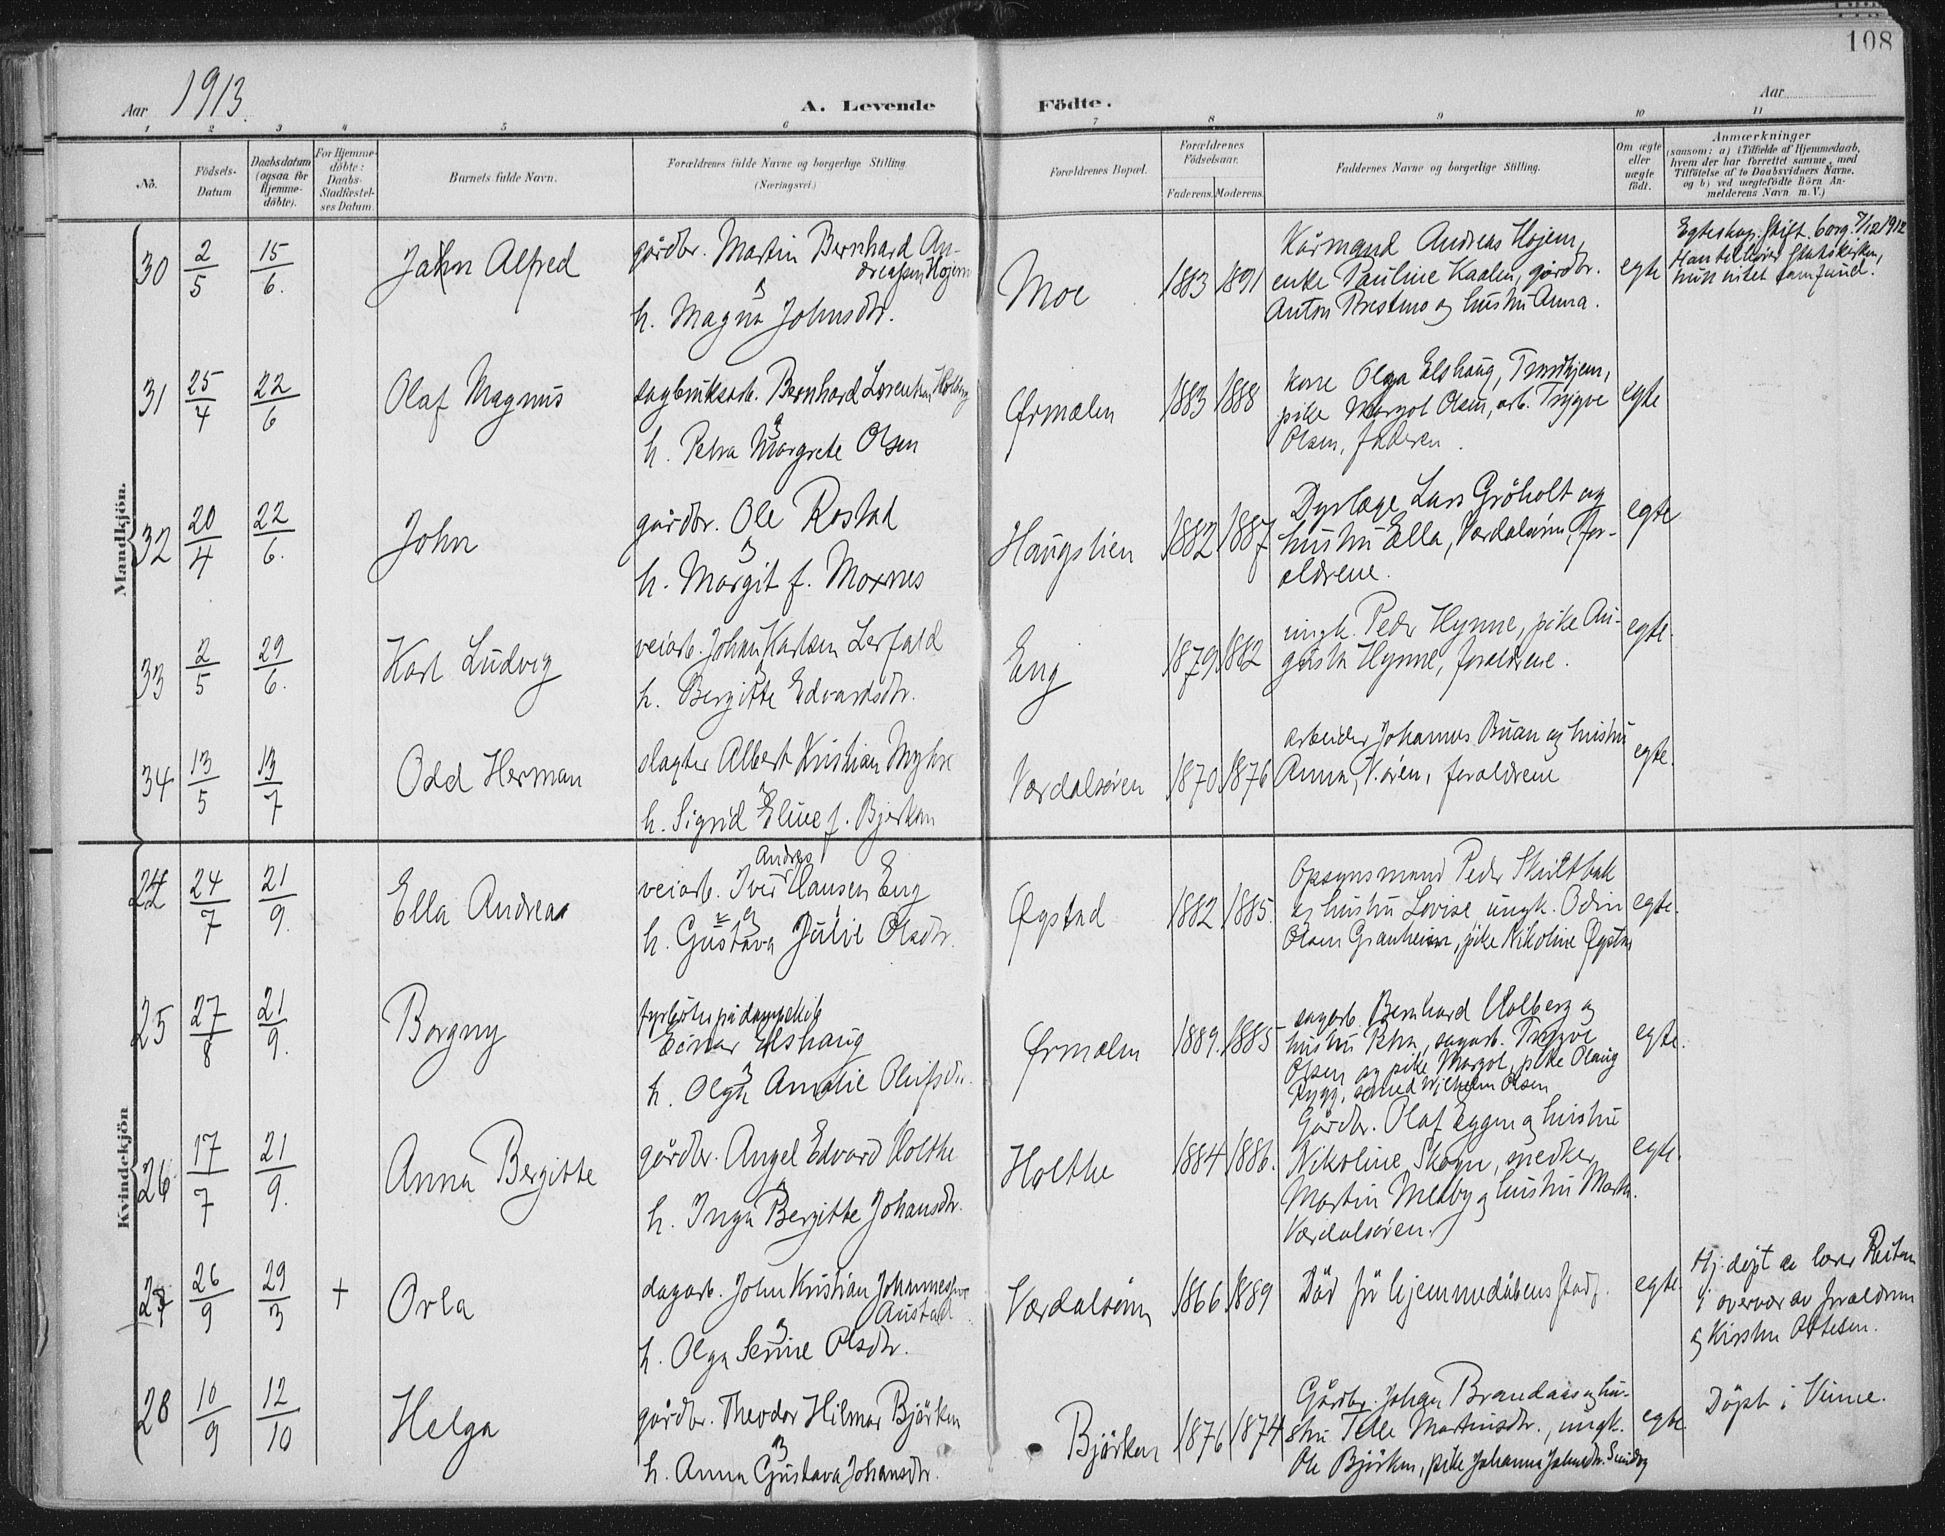 108
Aar 1913.
A. Levende Födte.
Aar
1 2 3 4 5 6 7 8 9 10 11
No.
Födsels-Datum
Daabsdatum (ogsaa for Hjemme-döbte).
For Hjemme-döbte: Daabs-Stadfestel-ses Datum.
Barnets fulde Navn.
Forældrenes fulde Navne og borgerlige Stilling
(Næringsvei.)
Forældrenes Bopæl.
Forældrenes Födselsaar.
Faderens. Moderens.
Faddernes Navne og borgerlige Stilling.
Om ægte eller uægte födt.
Anmærkninger
(saasom: a) i Tilfælde af Hjemmedaab, hvem der har forrettet samme, med Tilföielse af to Daabsvidners Navne, og b) ved uægtefödte Börn An-melderens Navn m. V.)
Mandkjön.
30 2/5 15/6. John Alfred
gårdbr. Martin Bernhard An-
dreassen Hojem
h. Magna Johnsdr.
Moe 1883 1891
Kårmand Andreas Hojem,
enke Pauline Kaalen, gårdbr.
Anton Prestmo og hustru Anna.
egte
Egteskap: Skift. borg. 7/12 1912
Han tilhører Statskirken,
hun intet samfund.
31 25/4 22/6 Olaf Magnus
sagbruksarb. Bernhard Lorentsen Holberg
h. Petra Margrete Olsen
Ørmælen 1883 1888
kone Olga Elshaug, Trondhjem,
pike Margot Olsen, arb. Trygve
Olsen, faderen.
egte
32 20/4 22/6. John
gårdbr. Ole Rostad
h. Margit f. Moxnes
Haugslien 1882 1887
Dyrlæge Lars Gröholt og
hustru Ella, Værdalsøren, for-
ældrene.
egte
33 2/5 29/6. Karl Ludvig
veiarb. Johan Karlsen Lerfald
h. Bergitte Edvardsdr.
Eng 1879 1882
ungk. Peder Hynne, pike Au-
gusta Hynne, forældrene.
egte.
34 13/5 13/7 Odd Herman
slagter Albert Kristian Myhre
h. Sigrid Eline f. Bjerkan
Værdalsøren 1870 1876
arbeider Johannes Buan og hustru
Anna, V.ören, forældrene
egte.
Kvindekjön
24 24/7 21/9. Ella Andrea
Andreas
veiarb. Iver Hansen Eng
h. Gustava Julie Olsdr.
Øgstad 1882 1885.
Opsynsmand Peder Skiltbak
og hustru Lovise, ungk. Odin
Olsen Granheim, pike Nikoline Øgstad
egte.
25 27/8 21/9. Borgny
fyrbøter på dampskib
Einar Elshaug
h. Olga Amalie Olufsdr.
Ørmælen 1889. 1885
sagarb. Bernhard Holberg og
hustru Petra, sagarb. Trygve
Olsen og pike Margot, pike Olaug
Rygg, smed Wilhelm Olsen
egte.
26 17/7 21/9. Anna Bergitte
gårdbr. Angel Edvard Holthe
h. Inga Bergitte Johansdr.
Holthe 1884 1886.
Gårdbr. Olaf Eggen og hustru
Nikoline, Skogn, snedker
Martin Melby og hustru Marta.
Værdalsøren.
egte.
27 26/9 29/3 + Orla
dagarb. John Kristian Johannessen
Austad
h. Olga Serine Olsdr.
Værdalsøren 1866 1889
Död för hjemmedåbens stadf.
egte.
Hj. døpt av lærer Reiten
i overvær av forældrene
og Kirsten Ottesen.
28 10/9 12/10 Helga
gårdbr. Theodor Hilmar Björken
h. Anna Gustava Johansdr.
Björken 1876 1874
Gårdbr. Johan Brandaas og hu-
stru Martinsdr., ungk.
Ole Björken, pike Johanna Johnsdr.
egte.
Döpt i Vinne.